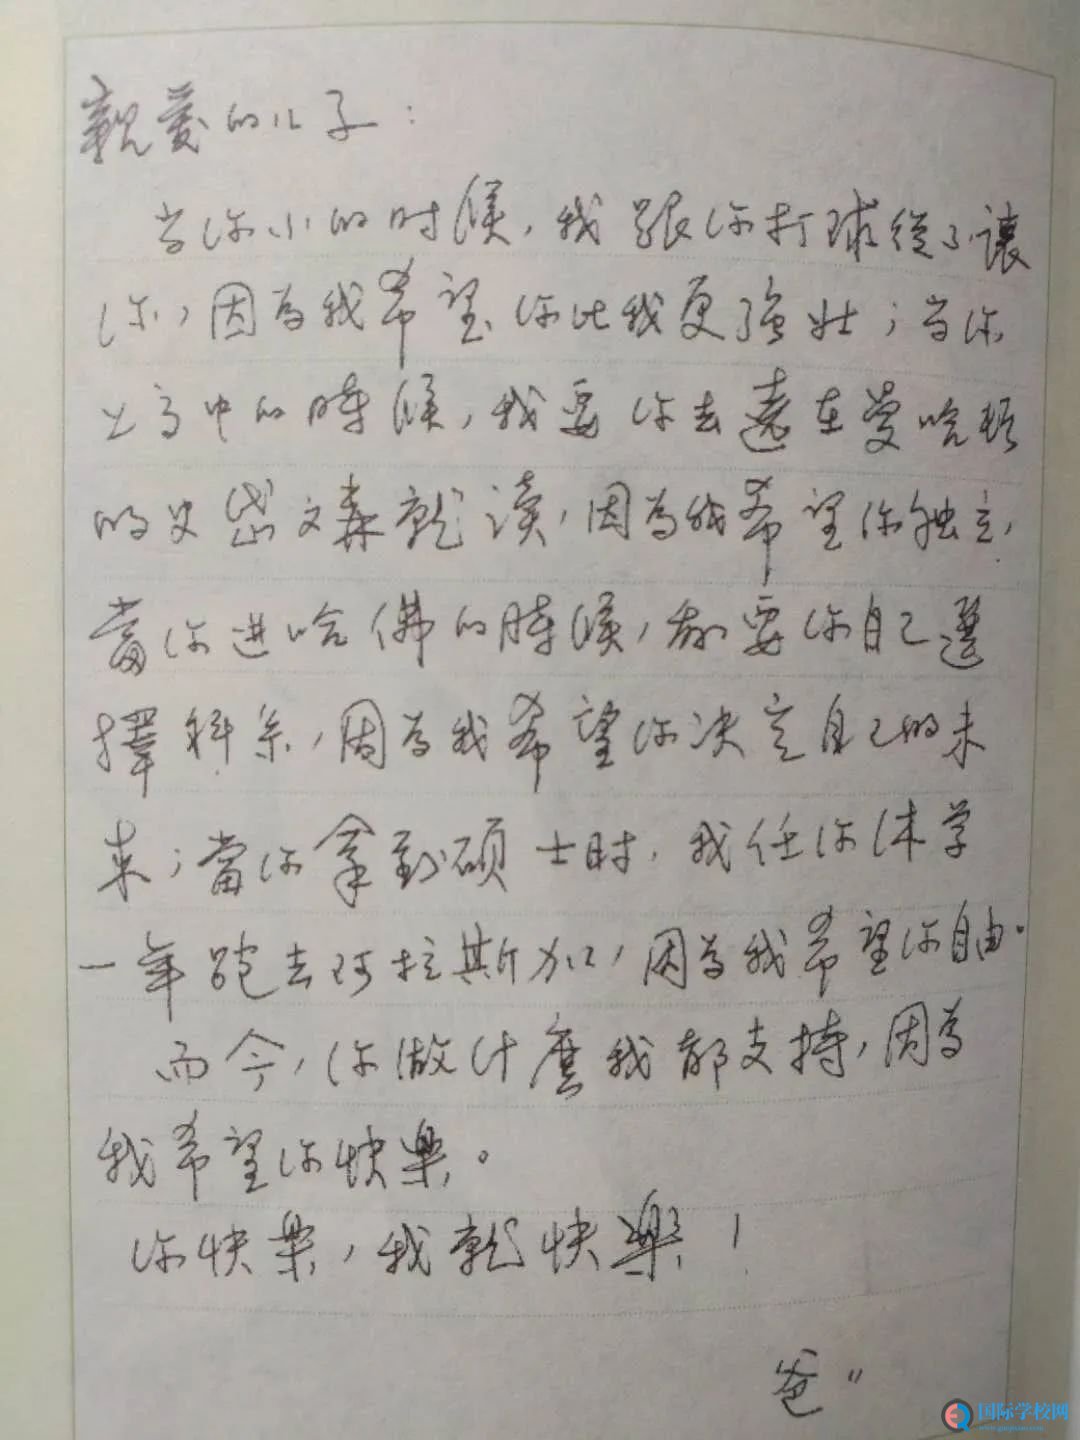 親爱的儿子：
当你小的时候，我跟你打球從不讓
你，因为我希望你比我更强壮；当你
上高中的時候，我要你去遠在曼哈頓
的史岱文森就读，因为我希望你独立，
當你进哈佛的時候，我要你自己選
擇科系，因为我希望你决定自己的未
来；當你拿到硕士时，我任你休学
一年跑去阿拉斯加，因为我希望你自由。
而今，你做什麼我都支持，因为
我希望你快樂。
你快樂，我就快樂！
爸〃
国际学校网